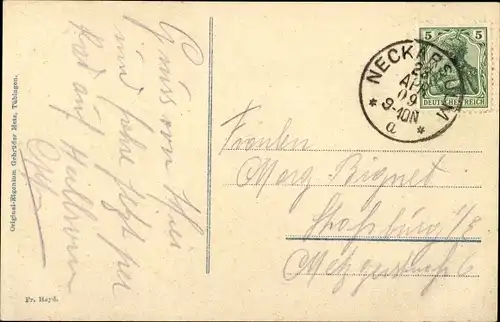 Gruss von hier
und fahre jetzt per
Rad auf Heilbronn
Original-Eigentum Gebrüder Metz, Tübingen.
Fr. Hayd.
NECKARSULM
APR
09
9-10N
a
5 5
DEUTSCHES REICH
Fräulein
Marg. Bignet
Straßburg i/E
Metzgerstraße 6